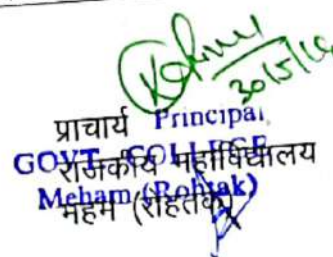 30/5/16
प्राचार्य Principal,
GOVT. COLLEGE
राजकीय महाविद्यालय
Meham (Rohtak)
महम (रोहतक)